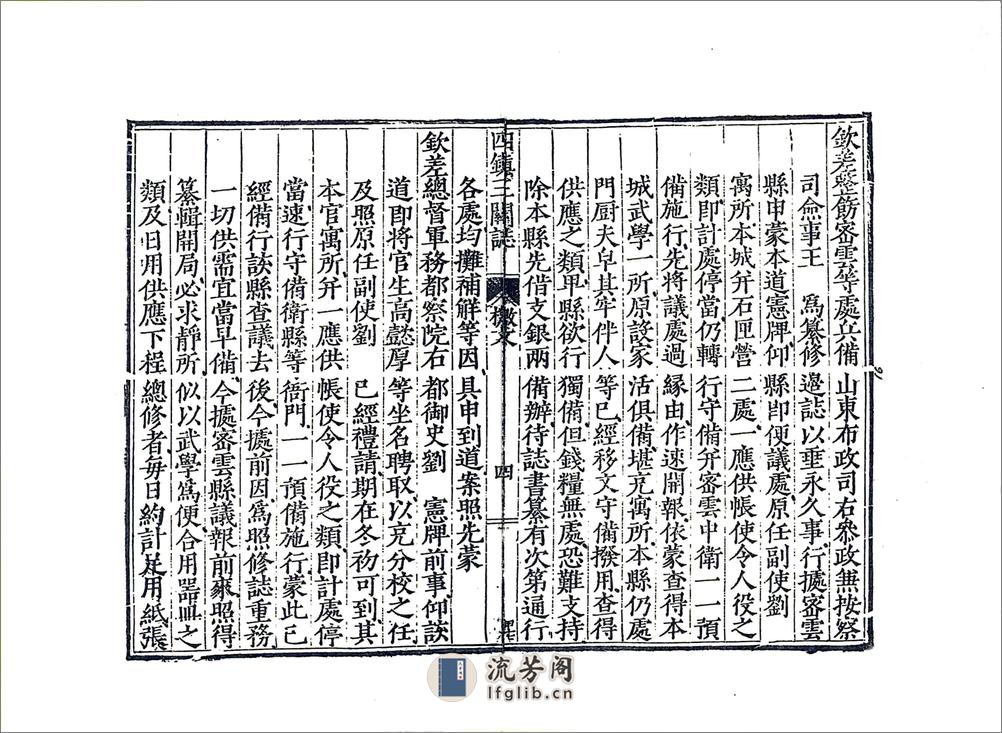 欽差整飭密雲等處兵備山東布政司右叅政無按察
司僉事王 爲纂修邊誌以垂永久事行據密雲
縣申蒙本道憲牌仰縣即便議處原任副使劉
寓所本城幷石匣營二處一應供帳使令人役之
類即計處停當仍轉行守備幷密雲中衛一一預
備施行先將議處過緣由作速開報依蒙查得本
城武學一所原設家活俱備堪充寓所本縣仍處
門厨夫皁其牢伴人等已經移文守備撥用查得
供應之類甲縣欲行獨備但錢糧無處恐難支持
除本縣先借支銀兩備辦待誌書纂有次第通行
四鎮三關誌 檄文 四
各處均攤補觧等因具申到道案照先蒙
欽差總督軍務都察院右都御史劉 憲牌前事仰該
道即將官生高懿厚等坐名聘取以充分校之任
及照原任副使劉 已經禮請期在冬初可到其
本官寓所幷一應供帳使令人役之類即計處停
當速行守備衛縣等衙門一一預備施行蒙此已
經備行該縣查議去後今據前因爲照修誌重務
一切供需宜當早備今據密雲縣議報前來照得
纂輯開局必求靜所似以武學爲便合用器皿之
類及日用供應下程總修者每日約計足用紙張
流芳阁
lfglib.cn